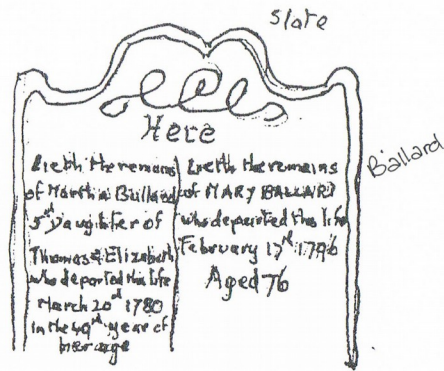 slate
Here
Lieth the remains
of Martha Bullard
5th Daughter of
Thomas & Elizabeth
who departed this life
March 20d 1780
in the 49th year of
her age
Lieth the remains
of MARY BALLARD
who departed this life
February 17d 1796
Aged 76
Ballard